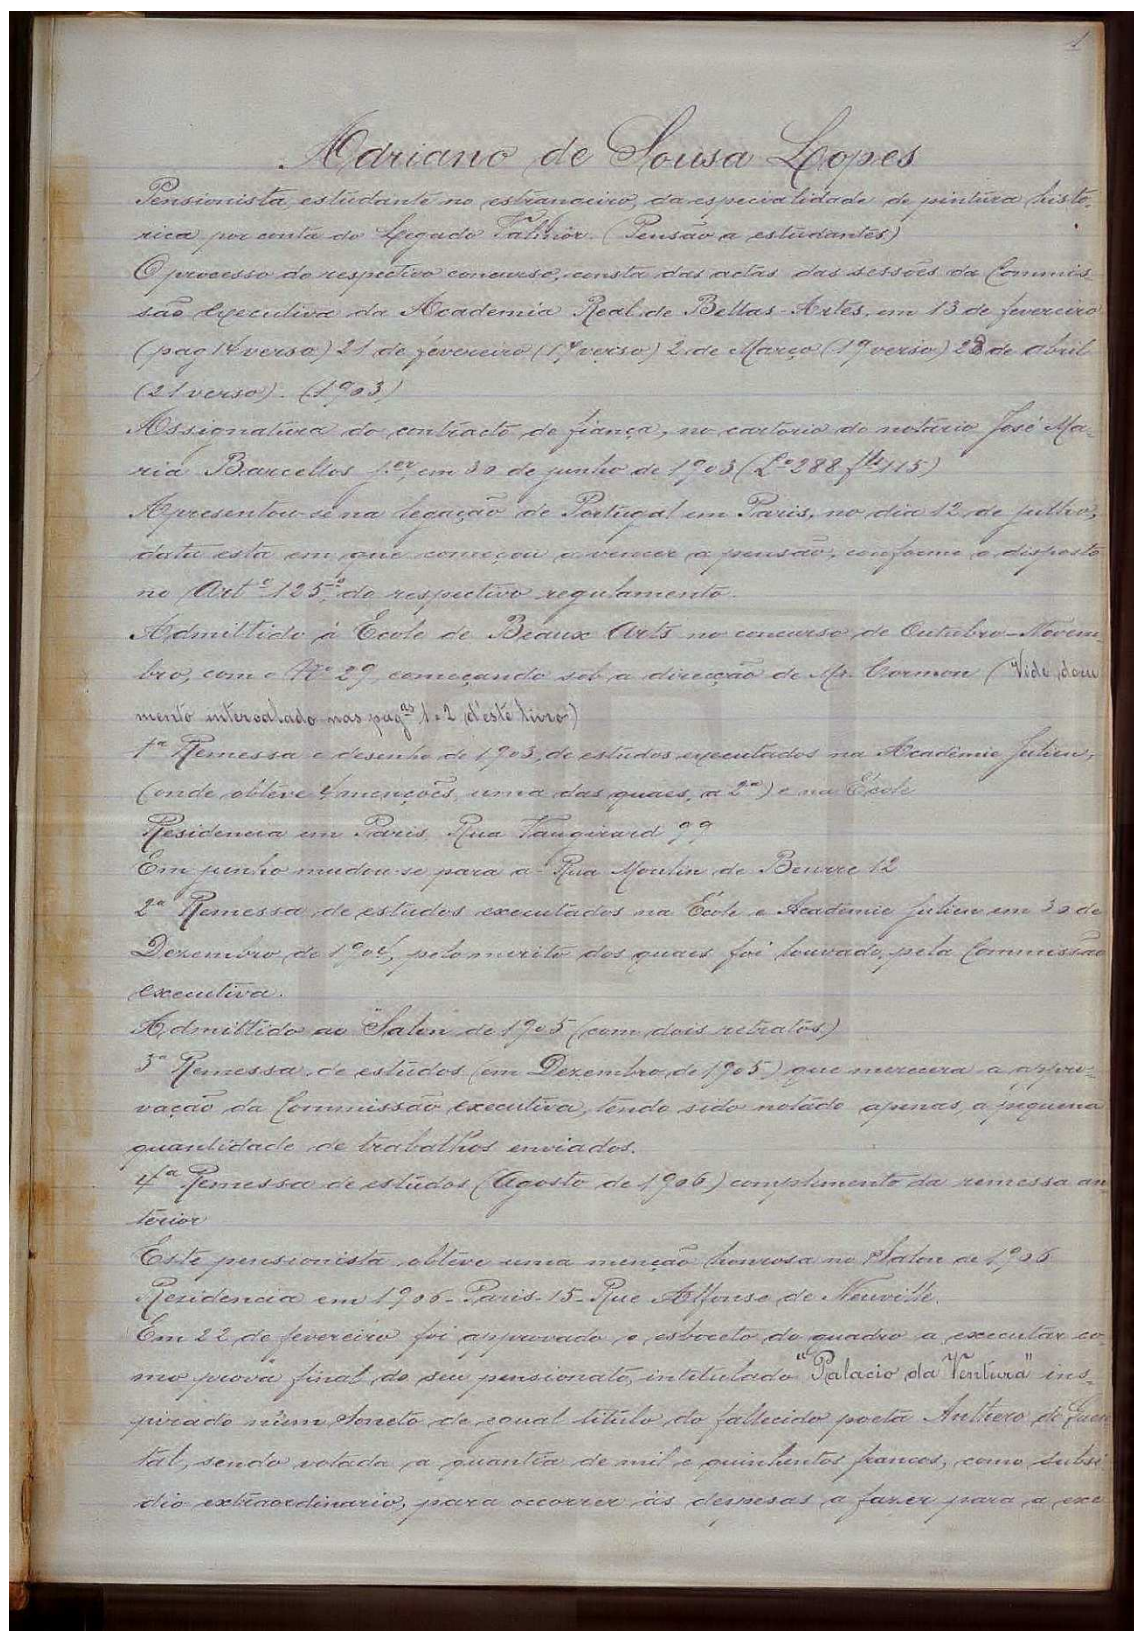 1
Adriano de Sousa Lopes
Pensionista estudante no estrangeiro, da especialidade de pintura histo-
rica por conta do Legado Valmôr. (Pensão a estudantes)
O processo do respectivo concurso, consta das actas das sessões da Commis-
são Executiva da Academia Real de Bellas-Artes, em 13 de fevereiro
(pag 14 verso) 21 de fevereiro (17 verso) 2 de Março (19 verso) 28 de abril
(21 verso). (1903)
Assignatura do contracto de fiança, no cartorio do notario José Ma-
ria Barcellos j.or, em 30 de junho de 1903 (L.o 288 fls 115)
Apresentou-se na legação de Portugal em Paris, no dia 12 de julho,
data esta em que começou a vencer a pensão, conforme o disposto
no Art.o 125.o, do respectivo regulamento.
Admittido á École de Beaux Arts no concurso de Outubro-Novem-
bro, com o N.o 29 começando sob a direcção de Mr. Cormon (Vide docu
mento intercalado nas pag.as 1 e 2 d'este livro)
1a Remessa e desenho de 1903, de estudos executados na Académie Julien,
(onde obteve 4 menções, uma das quaes, a 2a) e na École
Residencia em Paris, Rua Vaugirard 99
Em junho mudou-se para a Rua Moulin de Beurre 12
2a Remessa de estudos executados na École e Académie Julien em 30 de
Dezembro de 1904, pelo merito dos quaes foi louvado, pela Commissão
executiva.
Admittido ao "Salon de 1905 (com dois retratos)
3a Remessa, de estudos (em Dezembro de 1905) que merecera a appro-
vação da Commissão executiva, tendo sido notado apenas, a pequena
quantidade de trabalhos enviados.
4a Remessa de estudos (Agosto de 1906) complemento da remessa an
terior
Este pensionista obteve uma menção honrosa no Salon de 1906
Residencia em 1906 - Paris - 15 - Rue Alfonse de Neuville.
Em 22 de fevereiro foi approvado o esboceto do quadro a executar co-
mo prova final do seu pensionato, intitulado "Palacio da Ventura" ins-
pirado n'um Soneto de egual titulo do fallecido poeta Anthero do Quen
tal, sendo votada a quantia de mil e quinhentos francos, como subsi
dio extraordinario, para occorrer ás despesas a fazer para a exe